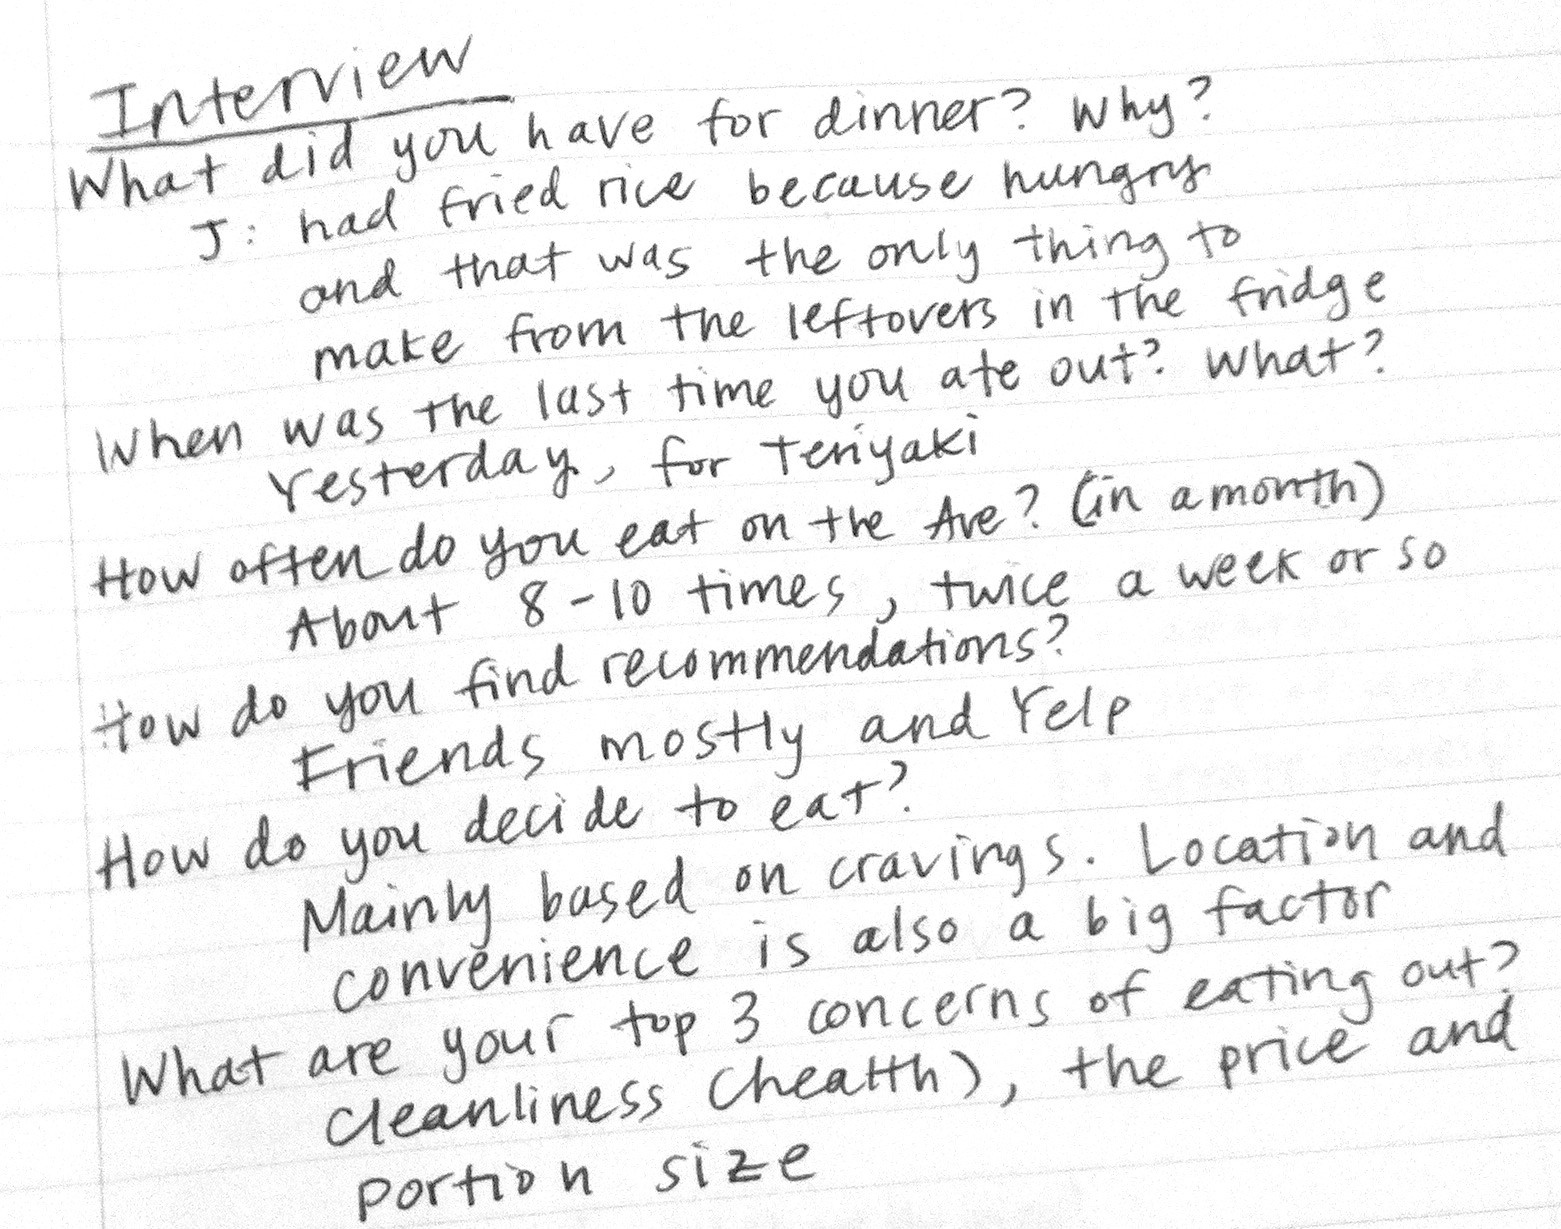 Interview
What did you have for dinner? Why?
J: had fried rice because hungry
and that was the only thing to
make from the leftovers in the fridge
When was the last time you ate out? What?
Yesterday, for Teriyaki
How often do you eat on the Ave? (in a month)
About 8-10 times, twice a week or so
How do you find recommendations?
Friends mostly and Yelp
How do you decide to eat?
Mainly based on cravings. Location and
convenience is also a big factor
What are your top 3 concerns of eating out?
Cleanliness (health), the price and
portion size